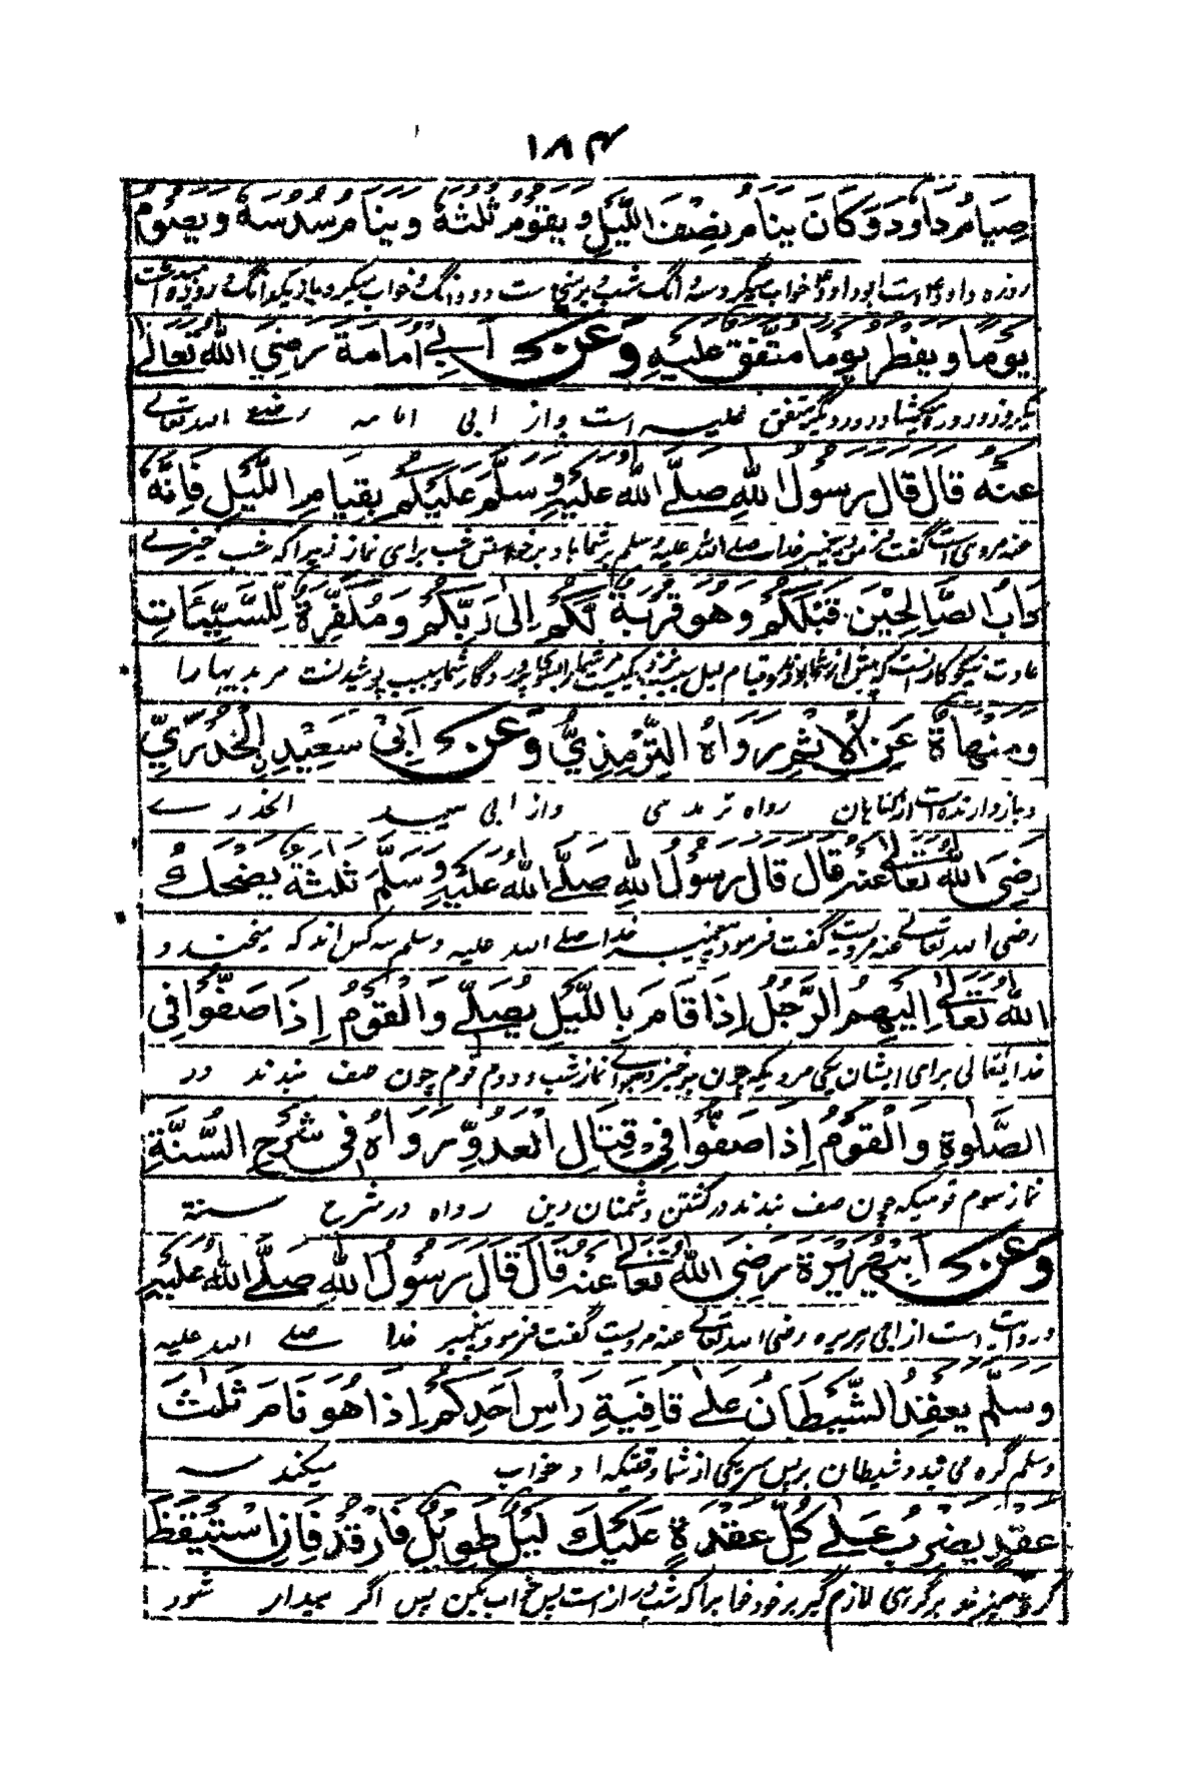 ۱۸۴
صِيَامُ دَاوُدَ وَكَانَ يَنَامُ نِصْفَ اللَّيْلِ وَيَقُومُ ثُلُثَهُ وَيَنَامُ سُدُسَهُ وَيَصُومُ
روزه داود است بود داود خواب میکرد شب برمیخاست و دو دانگ خواب میکرد باز یکدانگ و روزه میداشت
يَوْمًا وَيُفْطِرُ يَوْمًا مُتَّفَقٌ عَلَيْهِ وَعَنْ أَبِي أُمَامَةَ رَضِيَ اللَّهُ تَعَالَى
یکروز و روز دیگر متفق علیه است واز ابی امامه رضی الله تعالی
عَنْهُ قَالَ قَالَ رَسُولُ اللَّهِ صَلَّى اللَّهُ عَلَيْهِ وَسَلَّمَ عَلَيْكُمْ بِقِيَامِ اللَّيْلِ فَإِنَّهُ
عنه مروی است گفت فرمود پیغمبر خدا صلے الله علیه وسلم بر شما باد برخواستن شب برای نماز زیراکه شب خیزے
دَابُ الصَّالِحِيْنَ قَبْلَكُمْ وَهُوَ قُرْبَةٌ لَكُمْ إِلَى رَبِّكُمْ وَمُكَفِّرَةٌ لِلسَّيِّئَاتِ
عادت نیکوکارانست که پیش از شما بودند و قیام لیل پروردگار شما و سبب پوشیدنست مر بدیها را
وَمَنْهَاةٌ عَنِ الْإِثْمِ رَوَاهُ التِّرْمِذِيُّ وَعَنْ أَبِيْ سَعِيْدٍ الْخُدْرِيِّ
و بازدارنده است از گناهان رواه ترمذی واز ابی سعید الخدرے
رَضِيَ اللَّهُ تَعَالَى عَنْهُ قَالَ قَالَ رَسُولُ اللَّهِ صَلَّى اللَّهُ عَلَيْهِ وَسَلَّمَ ثَلٰثَةٌ يَضْحَكُ
رضی الله تعالی عنه مرویست گفت فرمود پیغمبر خدا صلے الله علیه وسلم سه کس اند که میخندد
اللَّهُ تَعَالَى إِلَيْهِمُ الرَّجُلُ إِذَا قَامَ بِاللَّيْلِ يُصَلِّي وَالْقَوْمُ إِذَا صَفُّوا فِي
خدایتعالی برای ایشان یکی مردیکه چون برخیزد برای نماز شب و دوم قوم چون صف بندند در
الصَّلٰوةِ وَالْقَوْمُ إِذَا صَفُّوا فِيْ قِتَالِ الْعَدُوِّ رَوَاهُ فِي شَرْحِ السُّنَّةِ
نماز سوم قومیکه چون صف بندند در کشتن دشمنان دین رواه در شرح سنة
وَعَنْ أَبِي هُرَيْرَةَ رَضِيَ اللَّهُ تَعَالَى عَنْهُ قَالَ قَالَ رَسُولُ اللَّهِ صَلَّى اللَّهُ عَلَيْهِ
و روایت است از ابی هریره رضی الله تعالے عنه مرویست گفت فرمود پیغمبر خدا صلے الله علیه
وَسَلَّمَ يَعْقِدُ الشَّيْطَانُ عَلٰى قَافِيَةِ رَأْسِ أَحَدِكُمْ إِذَا هُوَ نَامَ ثَلٰثَ
وسلم گره می بندد شیطان بر پس سر یکی از شما وقتیکه او خواب میکند سه
عُقَدٍ يَضْرِبُ عَلٰى كُلِّ عُقْدَةٍ عَلَيْكَ لَيْلٌ طَوِيلٌ فَارْقُدْ فَإِنِ اسْتَيْقَظَ
گره میزند بر گرهی لازم گیر بر خود که شب دراز است پس خواب بکن پس اگر بیدار شود